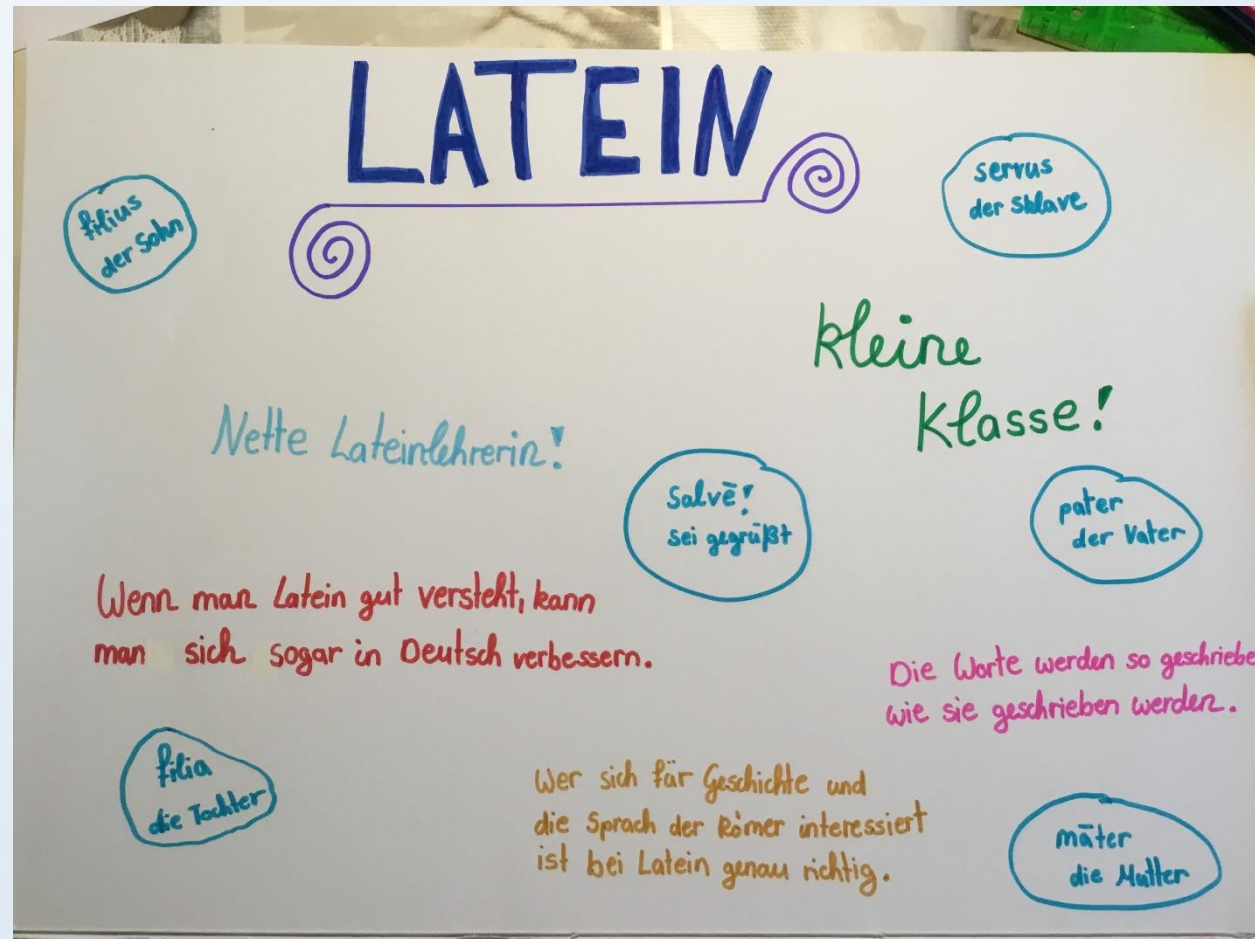 LATEIN
filius
der Sohn
servus
der Sklave
kleine
Klasse!
Nette Lateinlehrerin!
Salvē!
sei gegrüßt
pater
der Vater
Wenn man Latein gut versteht, kann
man sich sogar in Deutsch verbessern.
Die Worte werden so geschriebe
wie sie geschrieben werden.
filia
die Tochter
Wer sich für Geschichte und
die Sprach der Römer interessiert
ist bei Latein genau richtig.
māter
die Mutter